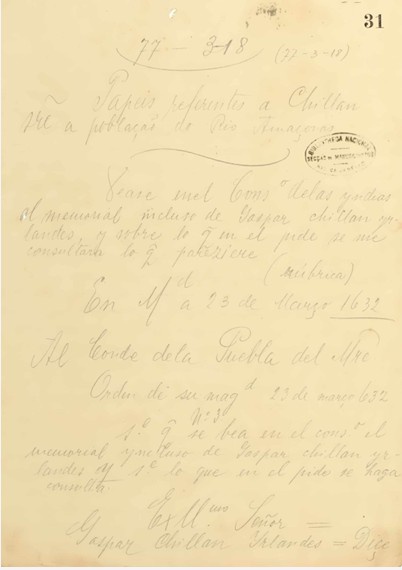 31
77 — 3-18 (77-3-18)
Papeis referentes a Chillan
sr̃e a poblaçaõ do Rio Amazonas
BIBLIOTHECA NACIONAL
Vease enel Cons.º delas yndias
el memorial incluso de Gaspar chillan yr-
landes, y sobre lo q̃ en el pide se me
consultara lo q̃ pareziere
(rubrica)
En M.d a 23 de Março 1632
Al Conde dela Puebla del Mre
Orden de su mag.d 23 de março 632
Nº 3.
s.e q̃ se bea en el cons.º el
memorial yncluso de Gaspar chillan yr-
landes y s.e lo que en el pide se haga
consulta.
Ex M.mo Señor =
Gaspar Chillan Yrlandes = Diçe